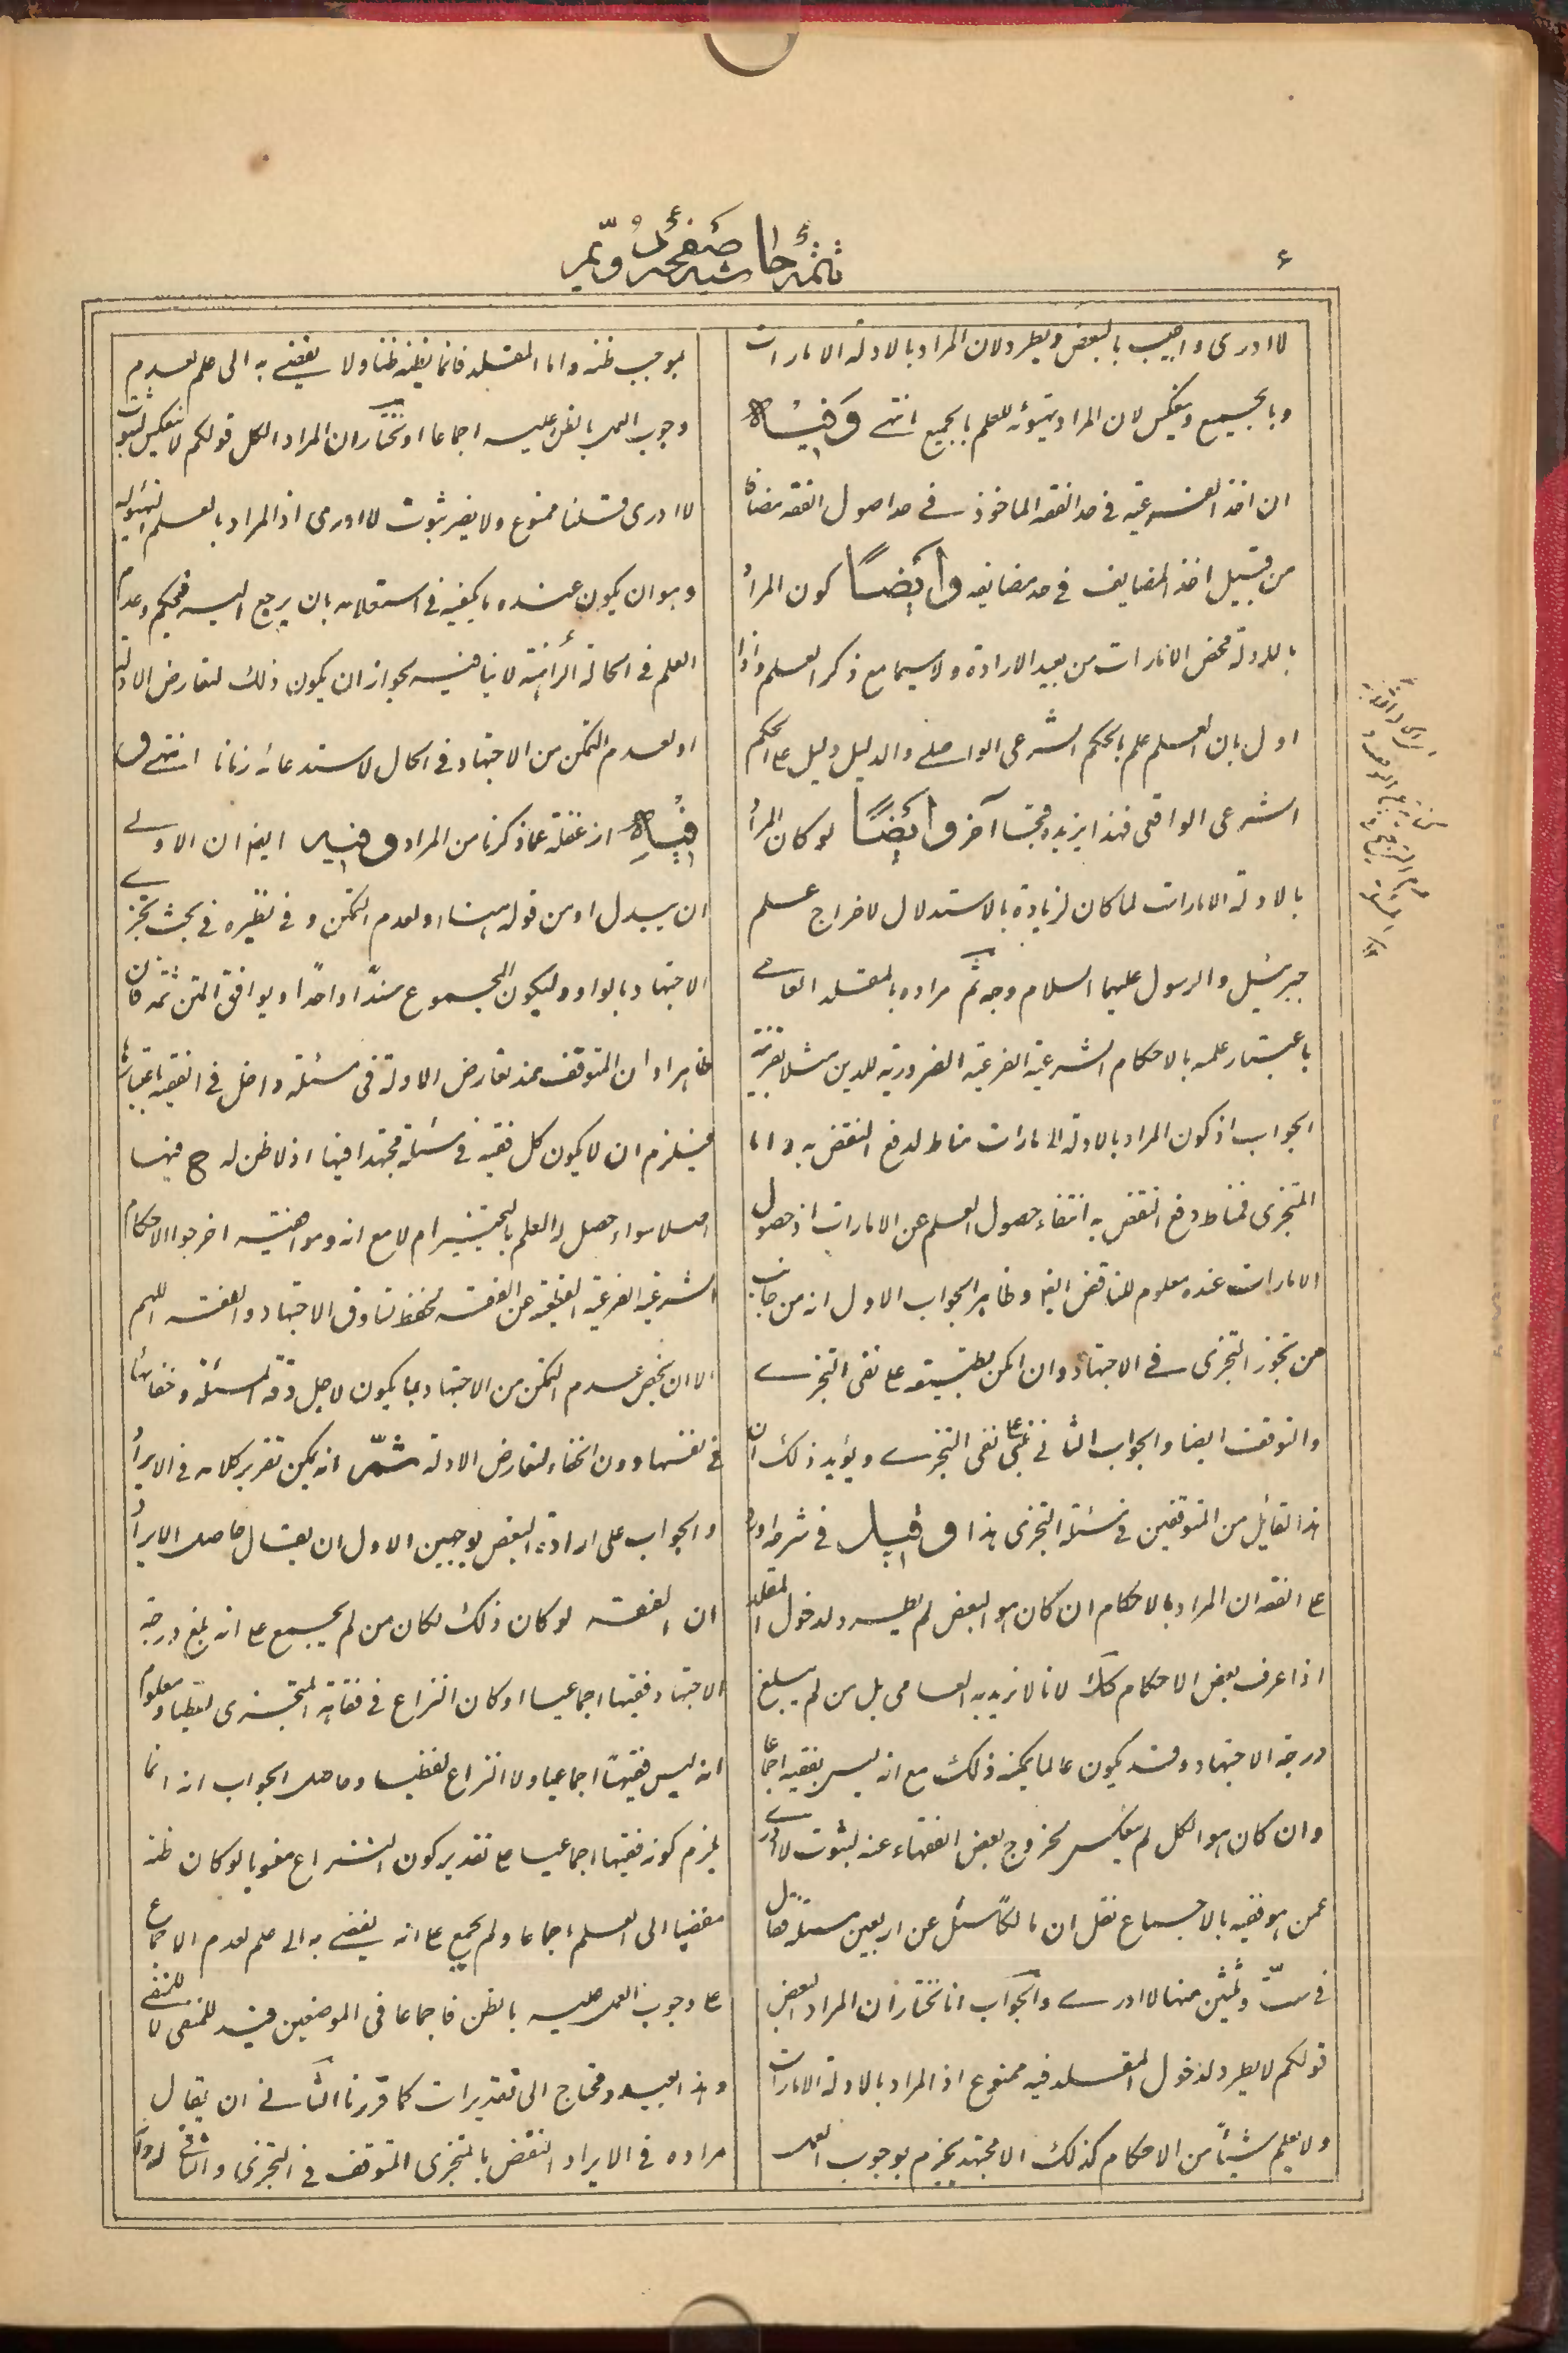 تتمۀ حاشیه صفحۀ دویّم
۴
لا ادری و اجیب بالبعض و یطرد لان المراد بالادلة الامارات
و بالجمیع و ینعکس لان المراد تهیؤه للعلم بالجمیع انتهی وَفیْه
ان اخذ الفرعیة فی حد الفقه الماخوذ فی حد اصول الفقه مضاف
من قبیل اخذ المضایف فی حد مضایفه وایضًا کون المراد
بالادلة محض الامارات من بعید الارادة و لاسیما مع ذکر العلم و اذا
اول بان العلم علم بالحکم الشرعی الواصلی و الدلیل دلیل ع الحکم
الشرعی الواقعی فهذا یزیده قبحا آخر وایضًا لو کان المراد
بالادلة الامارات لما کان لزیادة بالاستدلال لاخراج علم
جبرئیل و الرسول علیهما السلام وجه ثم مراده بالمقلد العامی
باعتبار علمه بالاحکام الشرعیة الفرعیة الضروریة للدین مثلا بقرینة
الجواب اذ کون المراد بالادلة الامارات مناط لدفع النقض به و اما
المتجزی فمناط دفع النقض به انتفاء حصول العلم عن الامارات اذ حصول
الامارات عنده معلوم للناقض ایضا و ظاهر الجواب الاول انه من جانب
من تجوز التجزی فی الاجتهاد و ان امکن تطبیقه ع نفی التجزے
و التوقف ایضا و الجواب الثانی مبنی علی نفی التجزے و یؤید ذلک ان
هذا القایل من المتوقفین فی مسئلة التجزی هذا وقیل فی شرح
ع الفقه ان المراد بالاحکام ان کان هو البعض لم یطرد لدخول المقلد
اذا عرف بعض الاحکام کک لانا لا نرید به العامی بل من لم یبلغ
درجة الاجتهاد و قد یکون عالما یمکنه ذلک مع انه لیس بفقیه اجماعا
و ان کان هو الکل لم ینعکس لخروج بعض الفقهاء عنه لثبوت لا ادری
عمن هو فقیه بالاجماع نقل ان مالکًا سئل عن اربعین مسئلة فقال
فی ستّ و ثلثین منها لا ادرے و الجوَاب انا نختار ان المراد البعض
قولکم لا یطرد لدخول المقلد فیه ممنوع اذ المراد بالادلة الامارات
و لا یعلم شیئاً من الاحکام کذلک الا مجتهد یجزم بوجوب العمل
بموجب ظنه و اما المقلد فانما یظنه ظنا و لا یفضی به الی علم لعدم
وجوب العمل بالظن علیه اجماعا او نختار ان المراد الکل قولکم لا ینعکس لثبوت
لا ادری قلنا ممنوع و لا یضر ثبوت لا ادری اذ المراد بالعلم التهیؤ له
و هو ان یکون عنده ما یکفیه فی استعلامه بان یرجع الیه فیحکم و عدم
العلم فی الحالة الراهنة لا ینافیه لجواز ان یکون ذلک لتعارض الادلة
او لعدم التمکن من الاجتهاد فی الحال لاستدعائه زمانا انتهی و
فیْه انه غفلة عما ذکرنا من المراد وفیه ایضا ان الاولے
ان یبدل او من قوله هنا او لعدم التمکن و فی نظیره فی بحث تجزے
الاجتهاد بالواو و لیکون المجموع سندًا واحدًا و یوافق المتن ثمه فان
ظاهر او ان المتوقف عند تعارض الادلة فی مسئلة داخل فی الفقیه باعتبارها
فیلزم ان لا یکون کل فقیه فی مسئلة مجتهدا فیها اذ لا ظن له ح فیها
اصلا سواء حصل له العلم بالتخییر ام لا مع انه و موافقیه اخرجوا الاحکام
الشرعیة الفرعیة القطعیة عن الفقه لحفظ تساوق الاجتهاد و الفقه اللهم
الا ان یخص عدم التمکن من الاجتهاد بما یکون لاجل دقة المسئلة و خفائها
فی نفسها دون الخفاء لتعارض الادلة ثمّ انه یمکن تقریر کلامه فی الایراد
و الجواب علی ارادة البعض بوجهین الاول ان یقال حاصل الایراد
ان الفقه لو کان ذلک لکان من لم یجمع ع انه بلغ درجة
الاجتهاد فقیها اجماعیا او کان النزاع فی فقاهة المتجزی لفظیا و معلوم
انه لیس فقیهًا اجماعیا و لا النزاع لفظیا و حاصل الجواب انه انما
یلزم کونه فقیها اجماعیا ع تقدیر کون النزاع معنویا لو کان ظنه
مفضیا الی العلم اجماعا و لم یجمع ع انه یفضی به الی علم لعدم الاجماع
ع وجوب العمل علیه بالظن فاجماعا فی الموضعین قید للمنفی لا للنفی
و هذا بعید و محتاج الی تقدیرات کما قررنا الثانی ان یقال
مراده فی الایراد النقض بالمتجزی المتوقف فی التجزی و